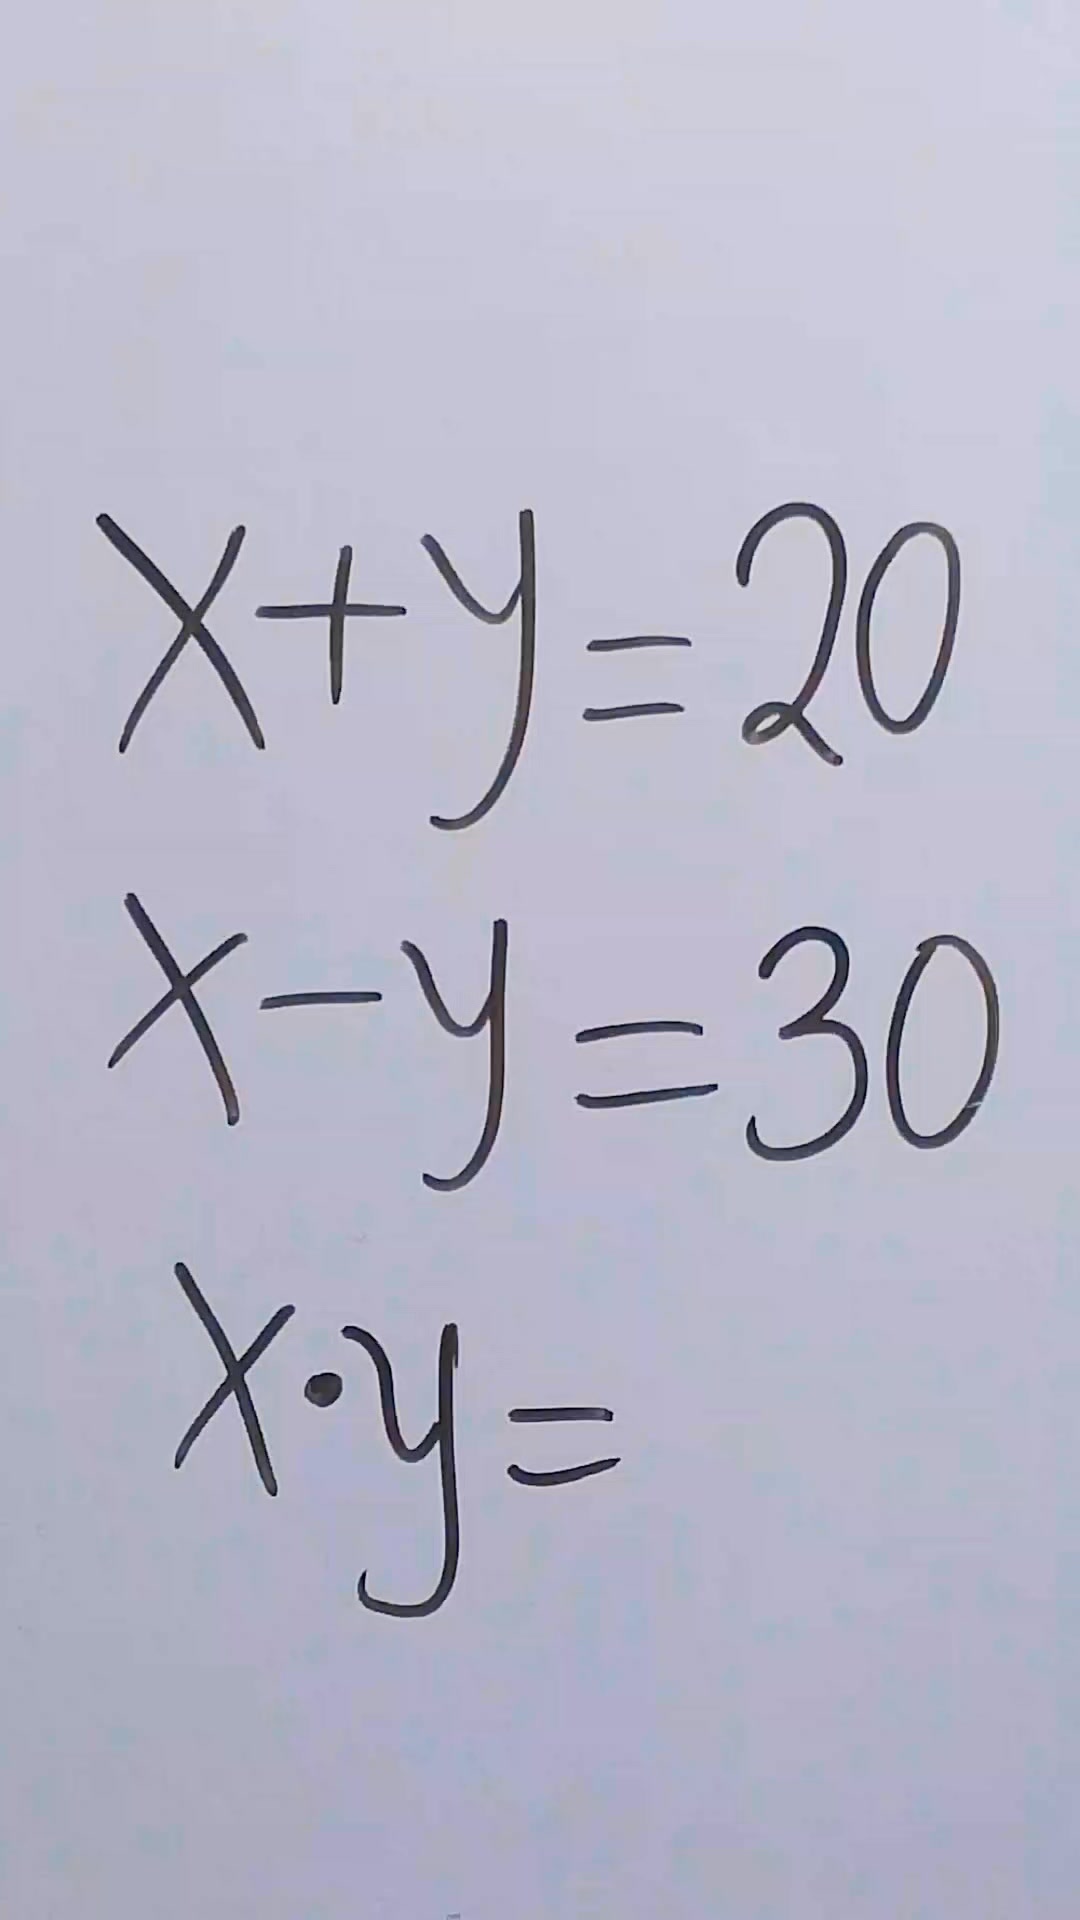 x+y=20
x-y=30
x·y=